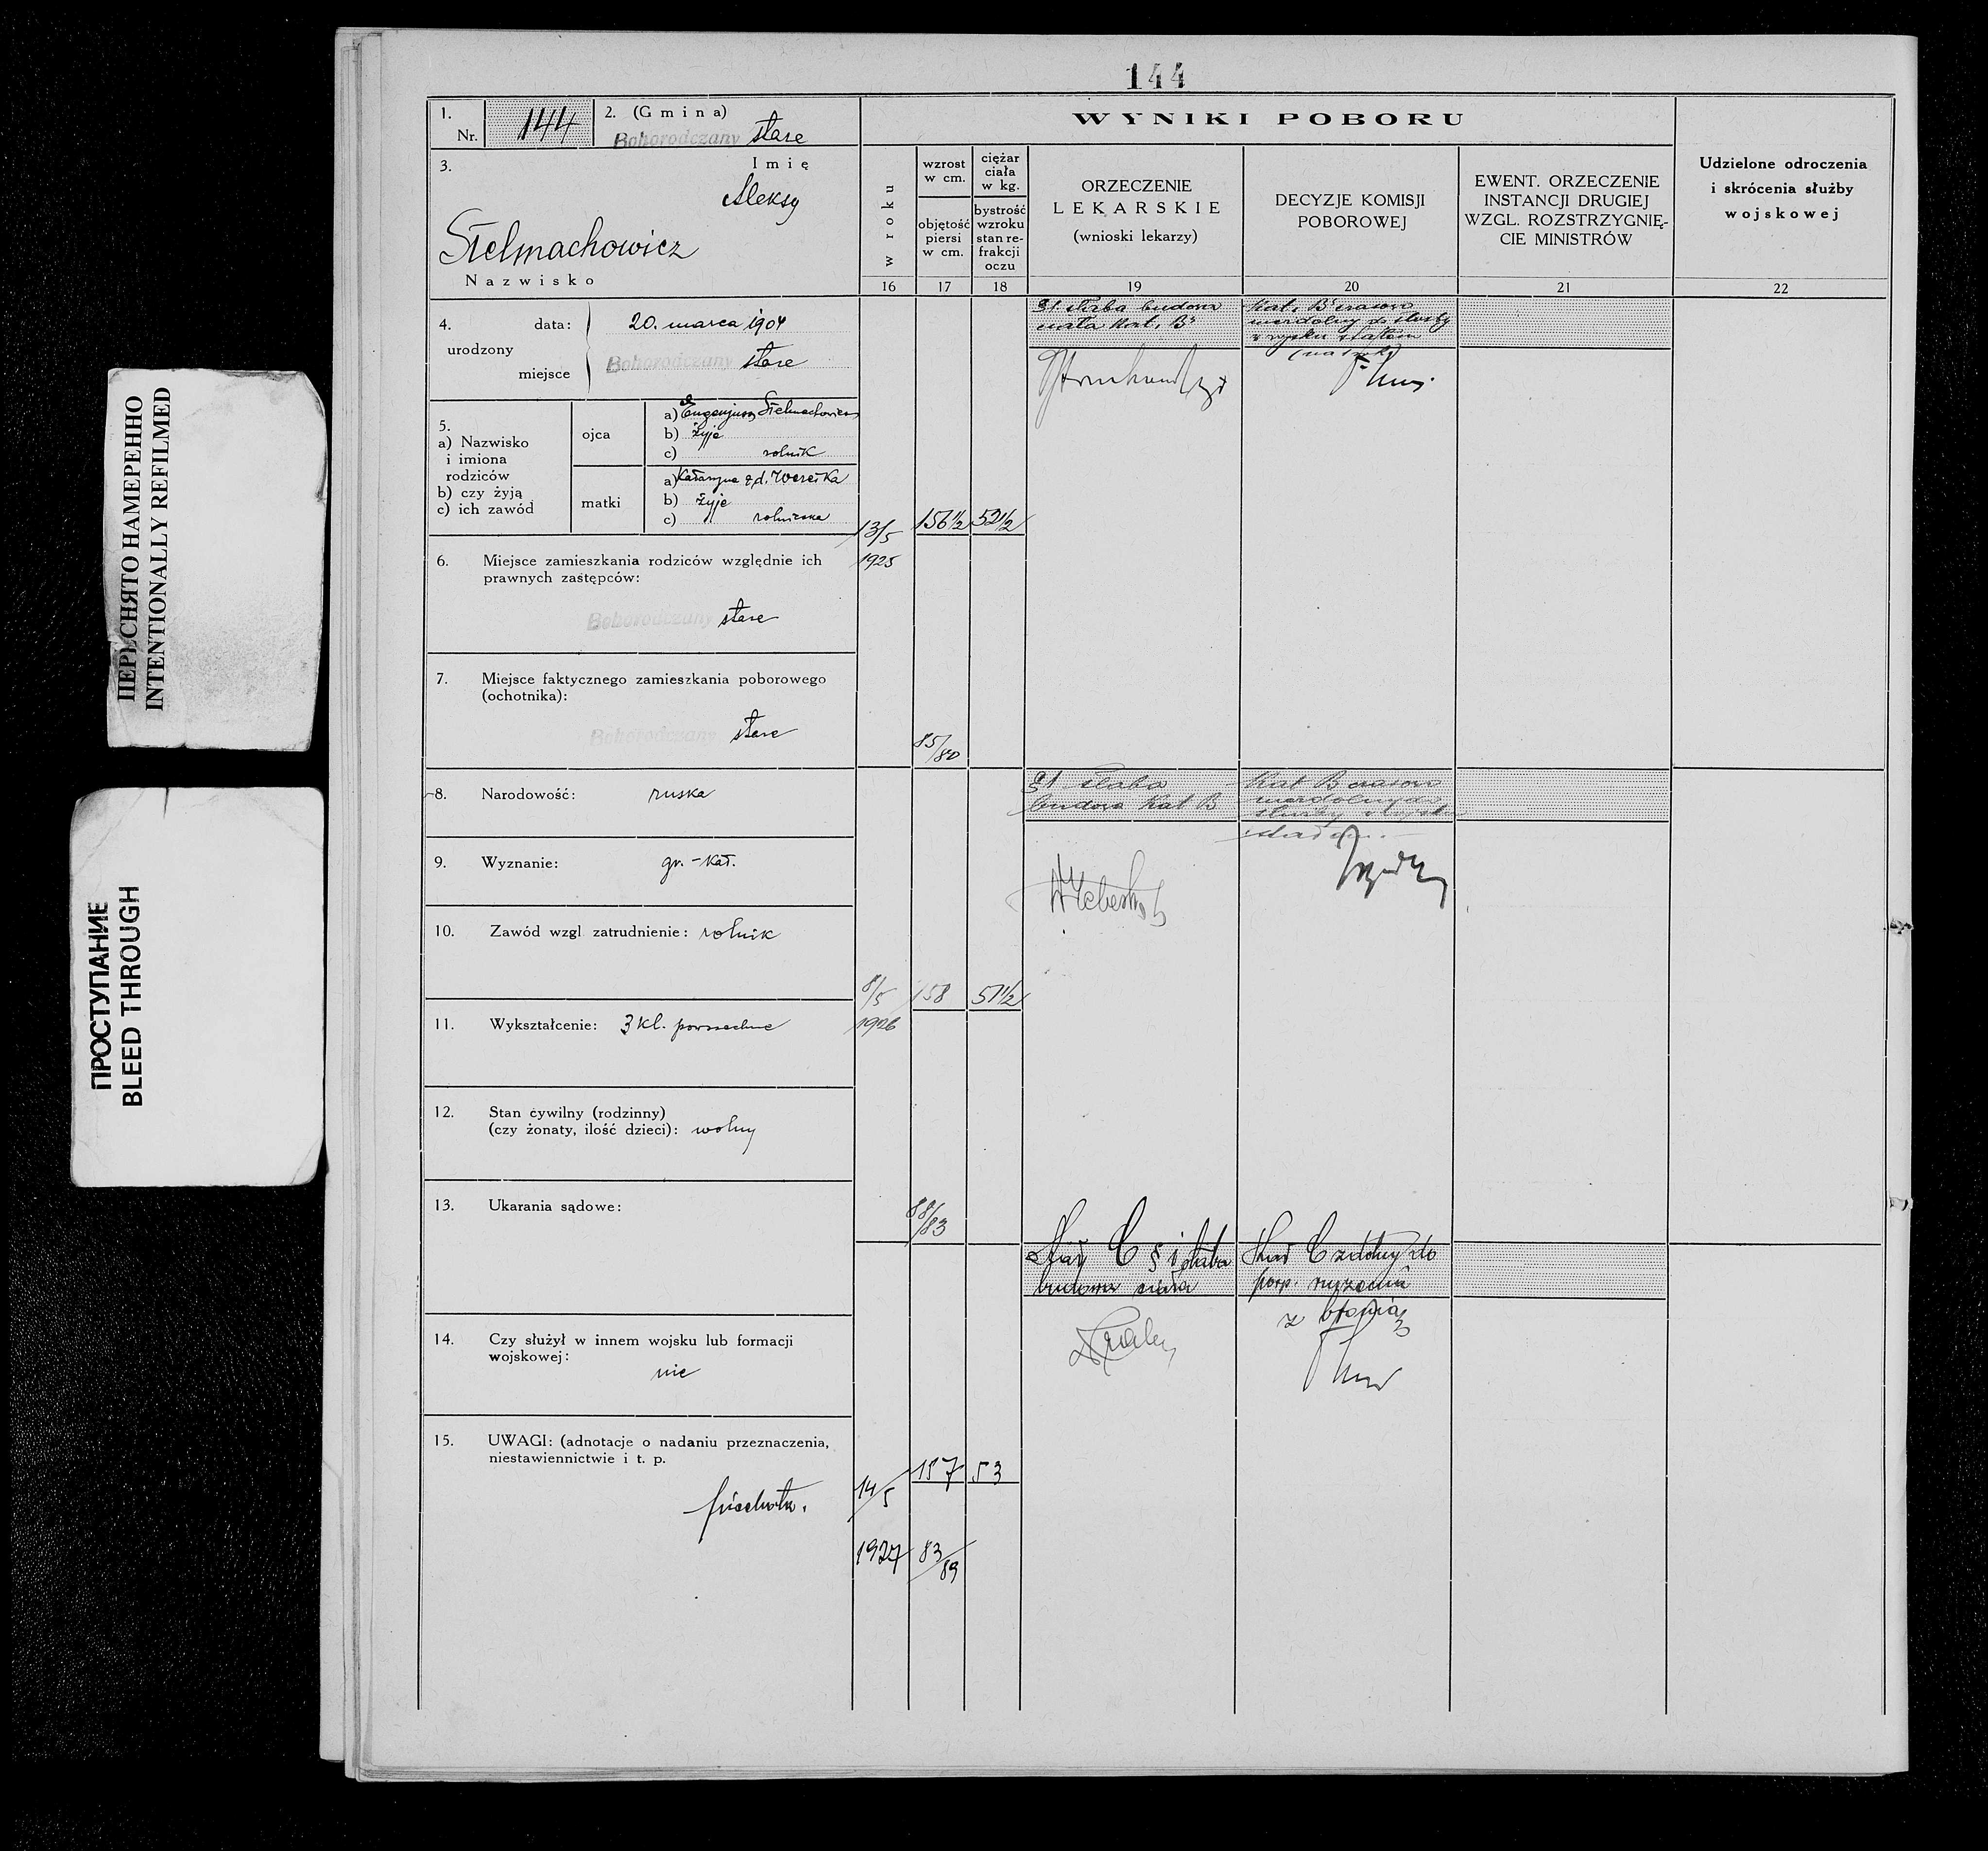 ПЕРЕСНЯТО НАМЕРЕННО
INTENTIONALLY REFILMED
ПРОСТУПАНИЕ
BLEED THROUGH
144
1.
Nr. 144
2. (Gmina)
Bohorodczany stare
3.
Imię
Aleksy
Stelmachowicz
Nazwisko
4. data: 20. marca 1904
urodzony
miejsce Bohorodczany stare
5.
a) Nazwisko
i imiona
rodziców
b) czy żyją
c) ich zawód
ojca
a) Eugenjusz Stelmachowicz
b) żyje
c) rolnik
matki
a) Katarzyna z d.
b) żyje
c) rolniczka
6. Miejsce zamieszkania rodziców względnie ich
prawnych zastępców:
Bohorodczany stare
7. Miejsce faktycznego zamieszkania poborowego
(ochotnika):
Bohorodczany stare
8. Narodowość: ruska
9. Wyznanie: gr.-kat.
10. Zawód wzgl. zatrudnienie: rolnik
11. Wykształcenie: 3 kl. powszechne
12. Stan cywilny (rodzinny)
(czy żonaty, ilość dzieci): wolny
13. Ukarania sądowe:
14. Czy służył w innem wojsku lub formacji
wojskowej:
nie
15. UWAGI: (adnotacje o nadaniu przeznaczenia,
niestawiennictwie i t. p.
piechota.
WYNIKI POBORU
w roku
16
wzrost
w cm.
objętość
piersi
w cm.
17
ciężar
ciała
w kg.
bystrość
wzroku
stan re-
frakcji
oczu
18
ORZECZENIE
LEKARSKIE
(wnioski lekarzy)
19
DECYZJE KOMISJI
POBOROWEJ
20
EWENT. ORZECZENIE
INSTANCJI DRUGIEJ
WZGL. ROZSTRZYGNIĘ-
CIE MINISTRÓW
21
Udzielone odroczenia
i skrócenia służby
wojskowej
22
13/5
1925
156 1/2
52 1/2
85/80
§1 słaba budowa
ciała Kat. B
Kat. B czasowo
niezdolny do służby
w wojsku stałem
8/5
1926
158
51 1/2
88/83
§1 słaba
budowa Kat B
Kat B czasowo
niezdolny do
służby w wojsku
stałem
14/5
1927
157
53
83/89
C § 1 słaba
budowa ciała
C zdolny do
posp. ruszenia
z bronią